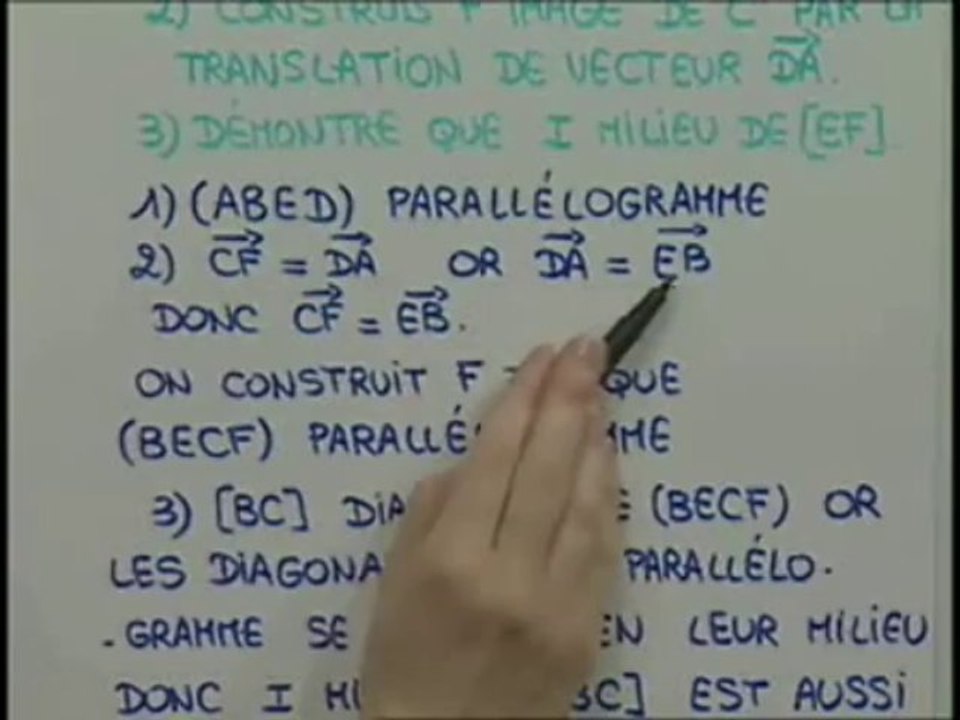 2) CONSTRUIS F IMAGE DE C PAR LA
TRANSLATION DE VECTEUR DA.
3) DÉMONTRE QUE I MILIEU DE [EF]
1) (ABED) PARALLÉLOGRAMME
2) CF = DA OR DA = EB
DONC CF = EB.
ON CONSTRUIT F QUE
(BECF)
3) [BC] (BECF) OR
LES PARALLÉLO.
.GRAMME SE EN LEUR MILIEU
DONC I BC] EST AUSSI